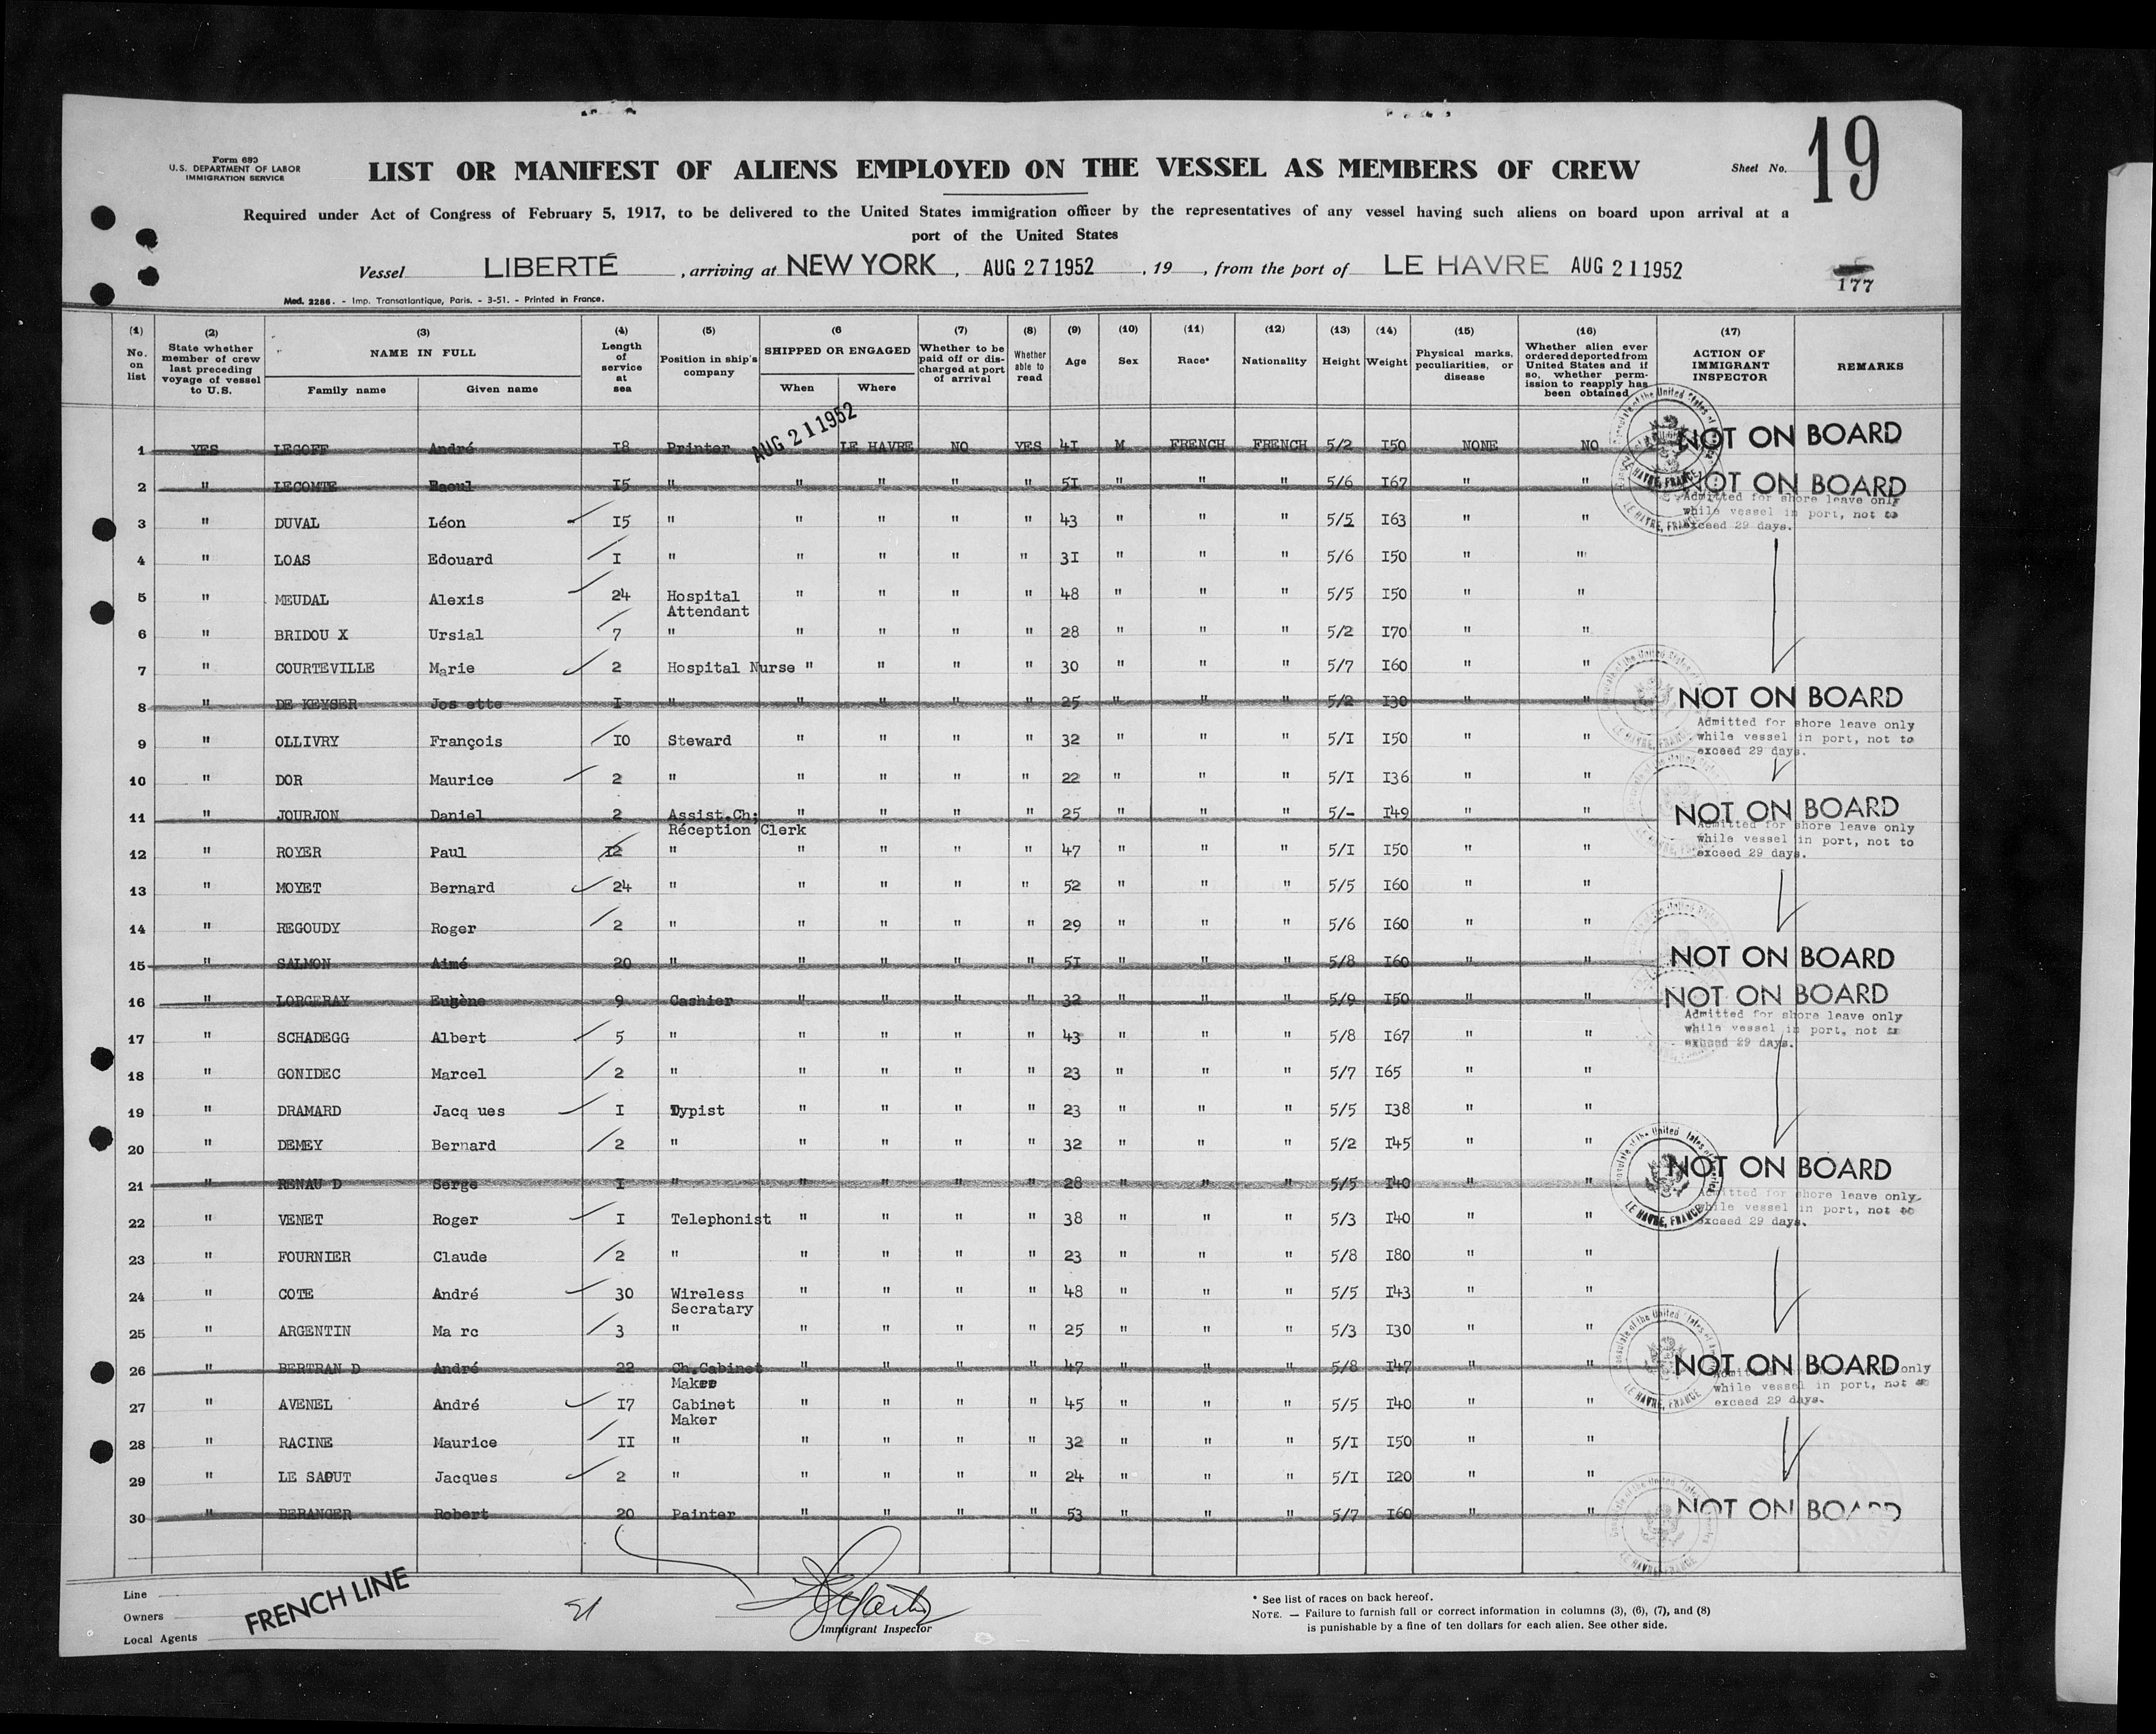 Form 680
U.S. DEPARTMENT OF LABOR
IMMIGRATION SERVICE
LIST OR MANIFEST OF ALIENS EMPLOYED ON THE VESSEL AS MEMBERS OF CREW
Sheet No. 19
Required under Act of Congress of February 5, 1917, to be delivered to the United States immigration officer by the representatives of any vessel having such aliens on board upon arrival at a
port of the United States
Vessel LIBERTÉ , arriving at NEW YORK , AUG 27 1952 , 19 , from the port of LE HAVRE AUG 21 1952
177
Mod. 2286. - Imp. Transatlantique, Paris. - 3-51. - Printed in France.
(1) No. on list (2) State whether member of crew last preceding voyage of vessel to U.S. (3) NAME IN FULL Family name Given name (4) Length of service at sea (5) Position in ship's company (6 SHIPPED OR ENGAGED When Where (7) Whether to be paid off or discharged at port of arrival (8) Whether able to read (9) Age (10) Sex (11) Race* (12) Nationality (13) Height (14) Weight (15) Physical marks, peculiarities, or disease (16) Whether alien ever ordered deported from United States and if so, whether permission to reapply has been obtained (17) ACTION OF IMMIGRANT INSPECTOR REMARKS
1 YES LEGOFF André I8 Printer AUG 21 1952 LE HAVRE NO YES 4I M FRENCH FRENCH 5/2 I50 NONE NO NOT ON BOARD
2 " LECOMTE Raoul I5 " " " " " 5I " " " 5/6 I67 " " NOT ON BOARD
Admitted for shore leave only
while vessel in port, not to
exceed 29 days.
3 " DUVAL Léon I5 " " " " " 43 " " " 5/5 I63 " "
4 " LOAS Edouard I " " " " " 3I " " " 5/6 I50 " "
5 " MEUDAL Alexis 24 Hospital Attendant " " " " 48 " " " 5/5 I50 " "
6 " BRIDOU X Ursial 7 " " " " " 28 " " " 5/2 I70 " "
7 " COURTEVILLE Marie 2 Hospital Nurse " " " " 30 " " " 5/7 I60 " "
8 " DE KEYSER Jos ette I " " " " " 25 " " " 5/2 I30 " " NOT ON BOARD
Admitted for shore leave only
while vessel in port, not to
exceed 29 days.
9 " OLLIVRY François I0 Steward " " " " 32 " " " 5/I I50 " "
10 " DOR Maurice 2 " " " " " 22 " " " 5/I I36 " "
11 " JOURJON Daniel 2 Assist.Ch; Réception Clerk " " " " 25 " " " 5/- I49 " " NOT ON BOARD
Admitted for shore leave only
while vessel in port, not to
exceed 29 days.
12 " ROYER Paul I2 " " " " " 47 " " " 5/I I50 " "
13 " MOYET Bernard 24 " " " " " 52 " " " 5/5 I60 " "
14 " REGOUDY Roger 2 " " " " " 29 " " " 5/6 I60 " "
15 " SALMON Aimé 20 " " " " " 5I " " " 5/8 I60 " " NOT ON BOARD
16 " LORGERAY Eugène 9 Cashier " " " " 32 " " " 5/9 I50 " " NOT ON BOARD
Admitted for shore leave only
while vessel in port, not to
exceed 29 days.
17 " SCHADEGG Albert 5 " " " " " 43 " " " 5/8 I67 " "
18 " GONIDEC Marcel 2 " " " " " 23 " " " 5/7 I65 " "
19 " DRAMARD Jacq ues I Typist " " " " 23 " " " 5/5 I38 " "
20 " DEMEY Bernard 2 " " " " " 32 " " " 5/2 I45 " "
21 " RENAU D Serge I " " " " " 28 " " " 5/5 I40 " " NOT ON BOARD
Admitted for shore leave only
while vessel in port, not to
exceed 29 days.
22 " VENET Roger I Telephonist " " " " 38 " " " 5/3 I40 " "
23 " FOURNIER Claude 2 " " " " " 23 " " " 5/8 I80 " "
24 " COTE André 30 Wireless Secratary " " " " 48 " " " 5/5 I43 " "
25 " ARGENTIN Ma rc 3 " " " " " 25 " " " 5/3 I30 " "
26 " BERTRAN D André 22 Ch.Cabinet Maker " " " " 47 " " " 5/8 I47 " " NOT ON BOARD
Admitted only
while vessel in port, not to
exceed 29 days.
27 " AVENEL André I7 Cabinet Maker " " " " 45 " " " 5/5 I40 " "
28 " RACINE Maurice II " " " " " 32 " " " 5/I I50 " "
29 " LE SAOUT Jacques 2 " " " " " 24 " " " 5/I I20 " "
30 " BERANGER Robert 20 Painter " " " " 53 " " " 5/7 I60 " " NOT ON BOARD
Line
Owners
Local Agents
FRENCH LINE
21
Immigrant Inspector
* See list of races on back hereof.
NOTE. — Failure to furnish full or correct information in columns (3), (6), (7), and (8)
is punishable by a fine of ten dollars for each alien. See other side.